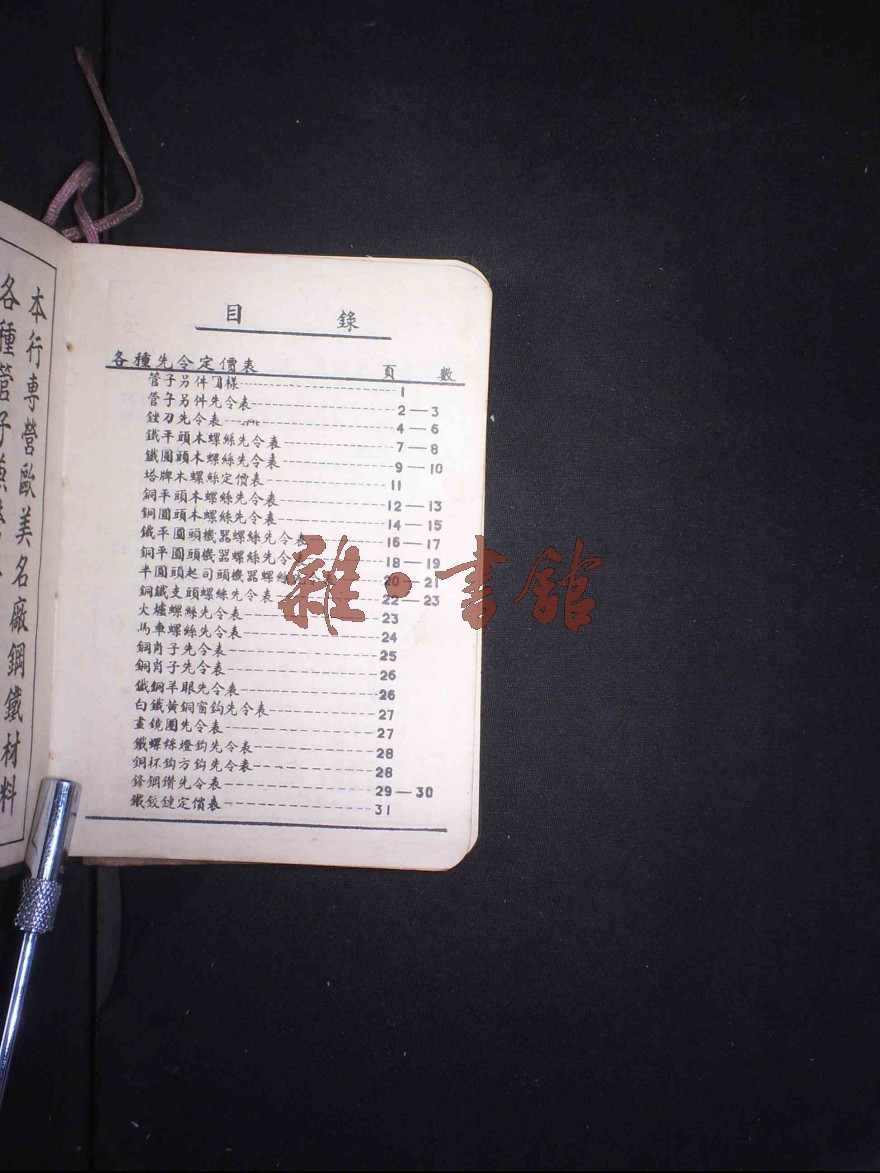 本行専營歐美名廠鋼鐵材料
各種管子
目錄
各種先令定價表 頁數
管子另件圖樣 1
管子另件先令表 2—3
銼刀先令表 4—6
鐵平頭木螺絲先令表 7—8
鐵圓頭木螺絲先令表 9—10
塔牌木螺絲定價表 11
銅平頭木螺絲先令表 12—13
銅圓頭木螺絲先令表 14—15
鐵平圓頭機器螺絲先令表 16—17
銅平圓頭機器螺絲先令 18—19
半圓頭起司頭機器螺絲先令表 20—21
銅鐵支頭螺絲先令表 22—23
火爐螺絲先令表 23
馬車螺絲先令表 24
鋼肖子先令表 25
銅肖子先令表 26
鐵銅羊眼先令表 26
白鐵黃銅窗鈎先令表 27
畫鏡圈先令表 27
鐵螺絲燈鈎先令表 28
銅杯鈎方鈎先令表 28
鋒鋼鑽先令表 29—30
鐵鉸鏈定價表 31
雜·書館